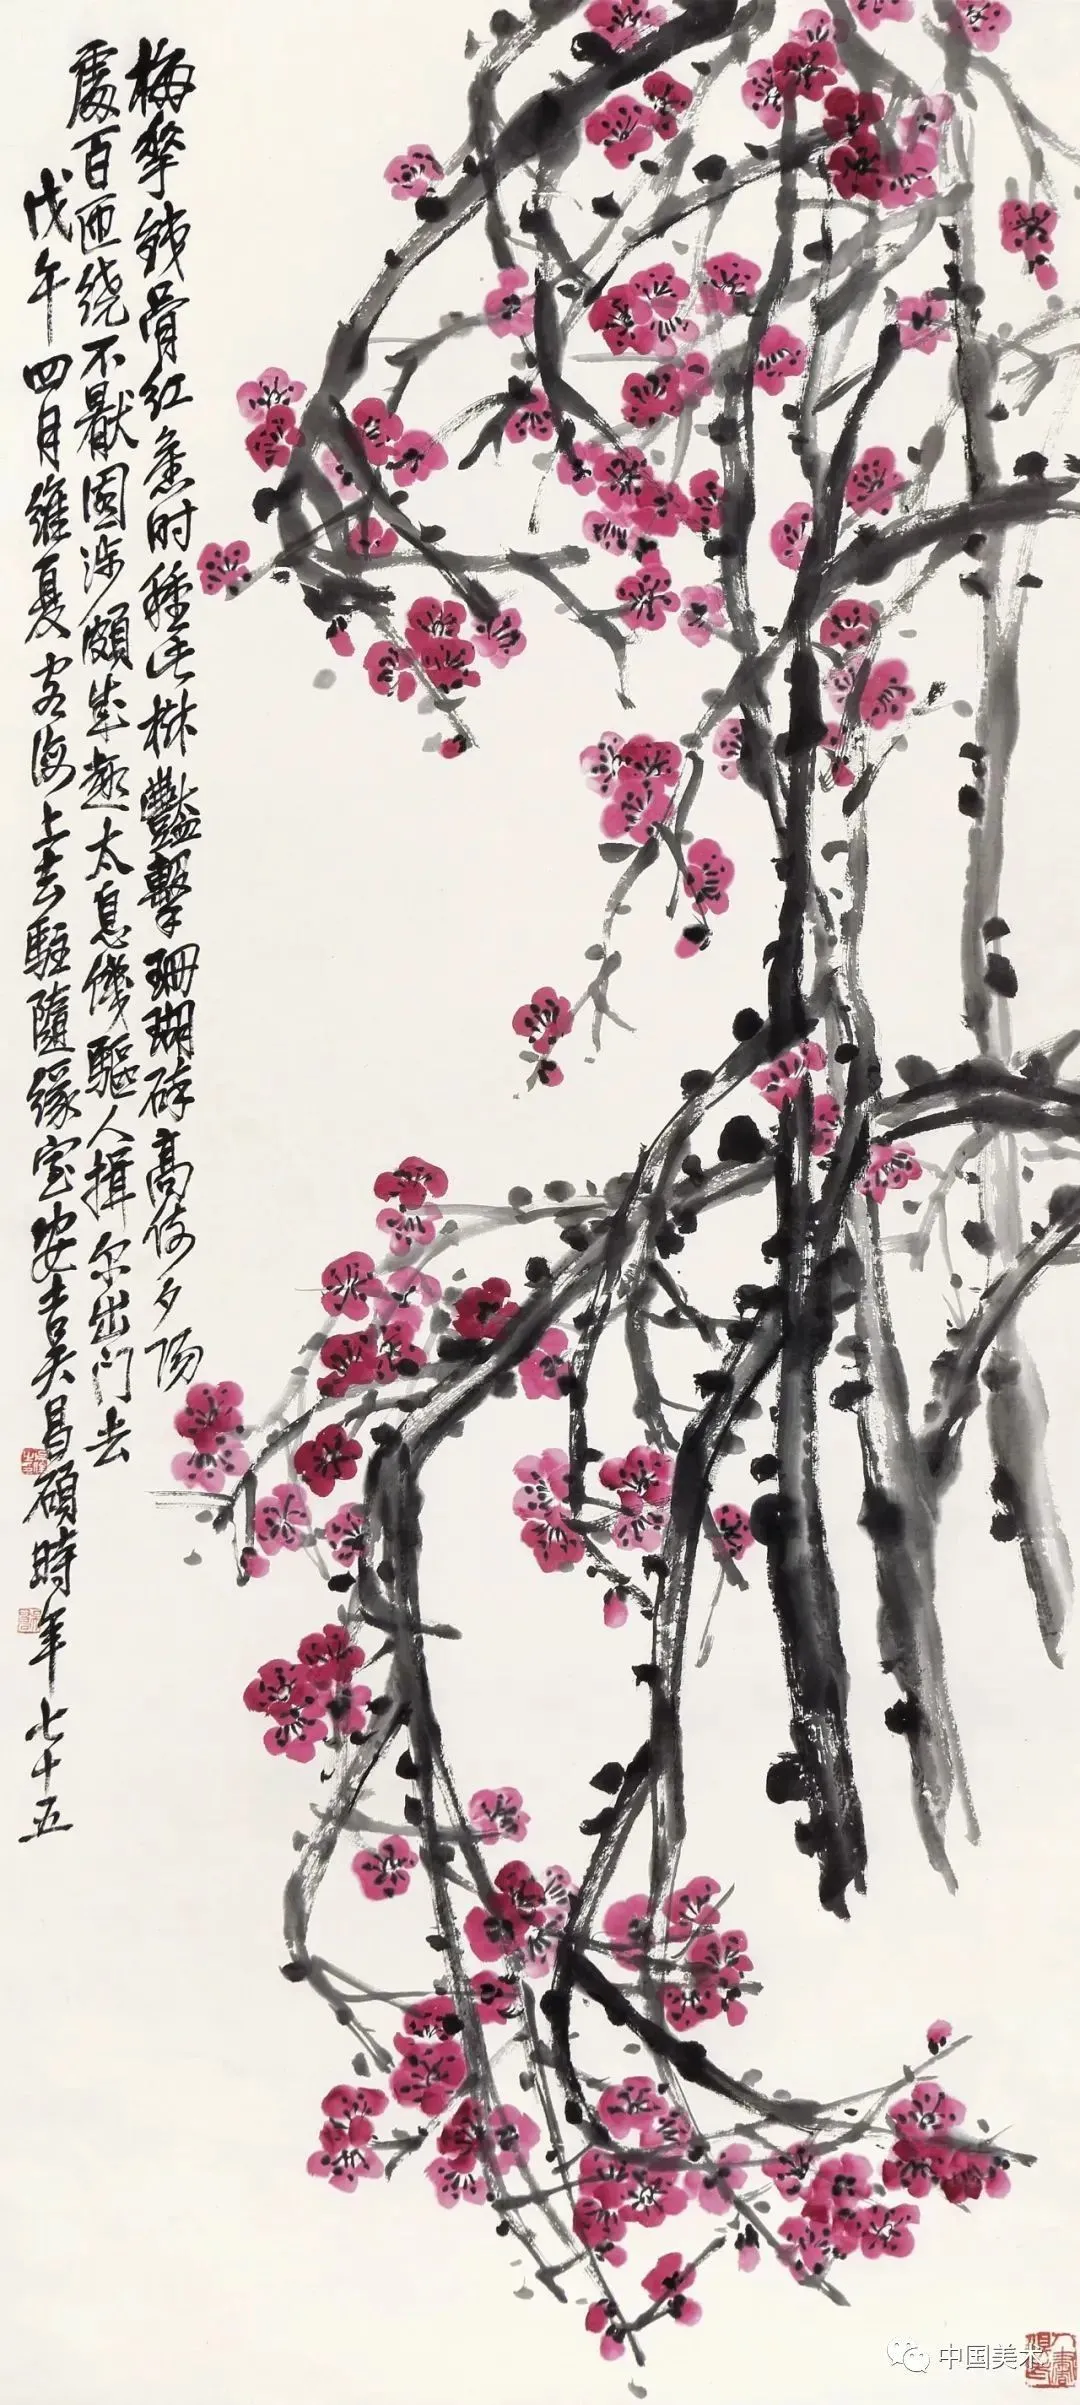 梅华铁骨红 旧时种此树 艳击珊瑚碎 高倚夕阳
处 百匝绕不厌 园涉颇成趣 太息饥驱人 揖尔出门去
戊午四月维夏客海上去驻随缘室安吉吴昌硕时年七十五
中国美术